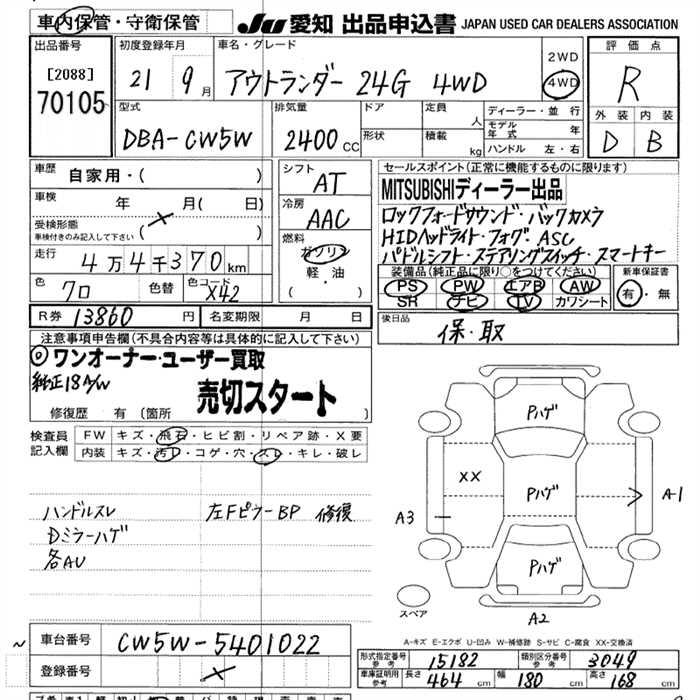 車内保管・守衛保管 JU 愛知 出品申込書 JAPAN USED CAR DEALERS ASSOCIATION
出品番号 [2088] 70105
初度登録年月 21 9月
車名・グレード アウトランダー 24G 4WD
2WD
4WD
評価点 R
外装 内装
D B
型式 DBA-CW5W
排気量 2400cc
ドア 形状
定員 人
積載 kg
ディーラー・並行
モデル年式 年
ハンドル 左・右
車歴 自家用・( )
車検 年 月( 日)
受検形態
車検付きのみ記入して下さい
走行 4万4千370km
色 クロ 色替 色コード X42
シフト AT
冷房 AAC
燃料 ガソリン
軽・油
( )
セールスポイント(正常に機能するものに限ります)
MITSUBISHIディーラー出品
ロックフォードサウンド・バックカメラ
HIDヘッドライト・フォグ・ASC
パドルシフト・ステアリングスイッチ・スマートキー
装備品(純正品に限り○をつけてください)
PS PW エアB AW
SR ナビ TV カワシート
新車保証書
有・無
R券 13860円 名変期限 月 日
後日品 保・取
注意事項申告欄(不具合内容等は具体的に記入して下さい)
◎ワンオーナー・ユーザー買取
純正18A/W 売切スタート
修復歴 有(箇所 )
検査員記入欄
FW キズ・飛石・ヒビ割・リペア跡・X要
内装 キズ・汚レ・コゲ・穴・スレ・キレ・破レ
ハンドルスレ 左Fピラー BP 修復
Dミラーハゲ
各AU
Pハゲ
XX Pハゲ A-1
A3
Pハゲ
スペア
A2
A-キズ E-エクボ U-凹み W-補修跡 S-サビ C-腐食 XX-交換済
車台番号 CW5W-5401022
登録番号
形式指定番号 参考 15182 類別区分番号 参考 3049
車庫証明用 参考 長さ 464cm 幅 180cm 高さ 168cm